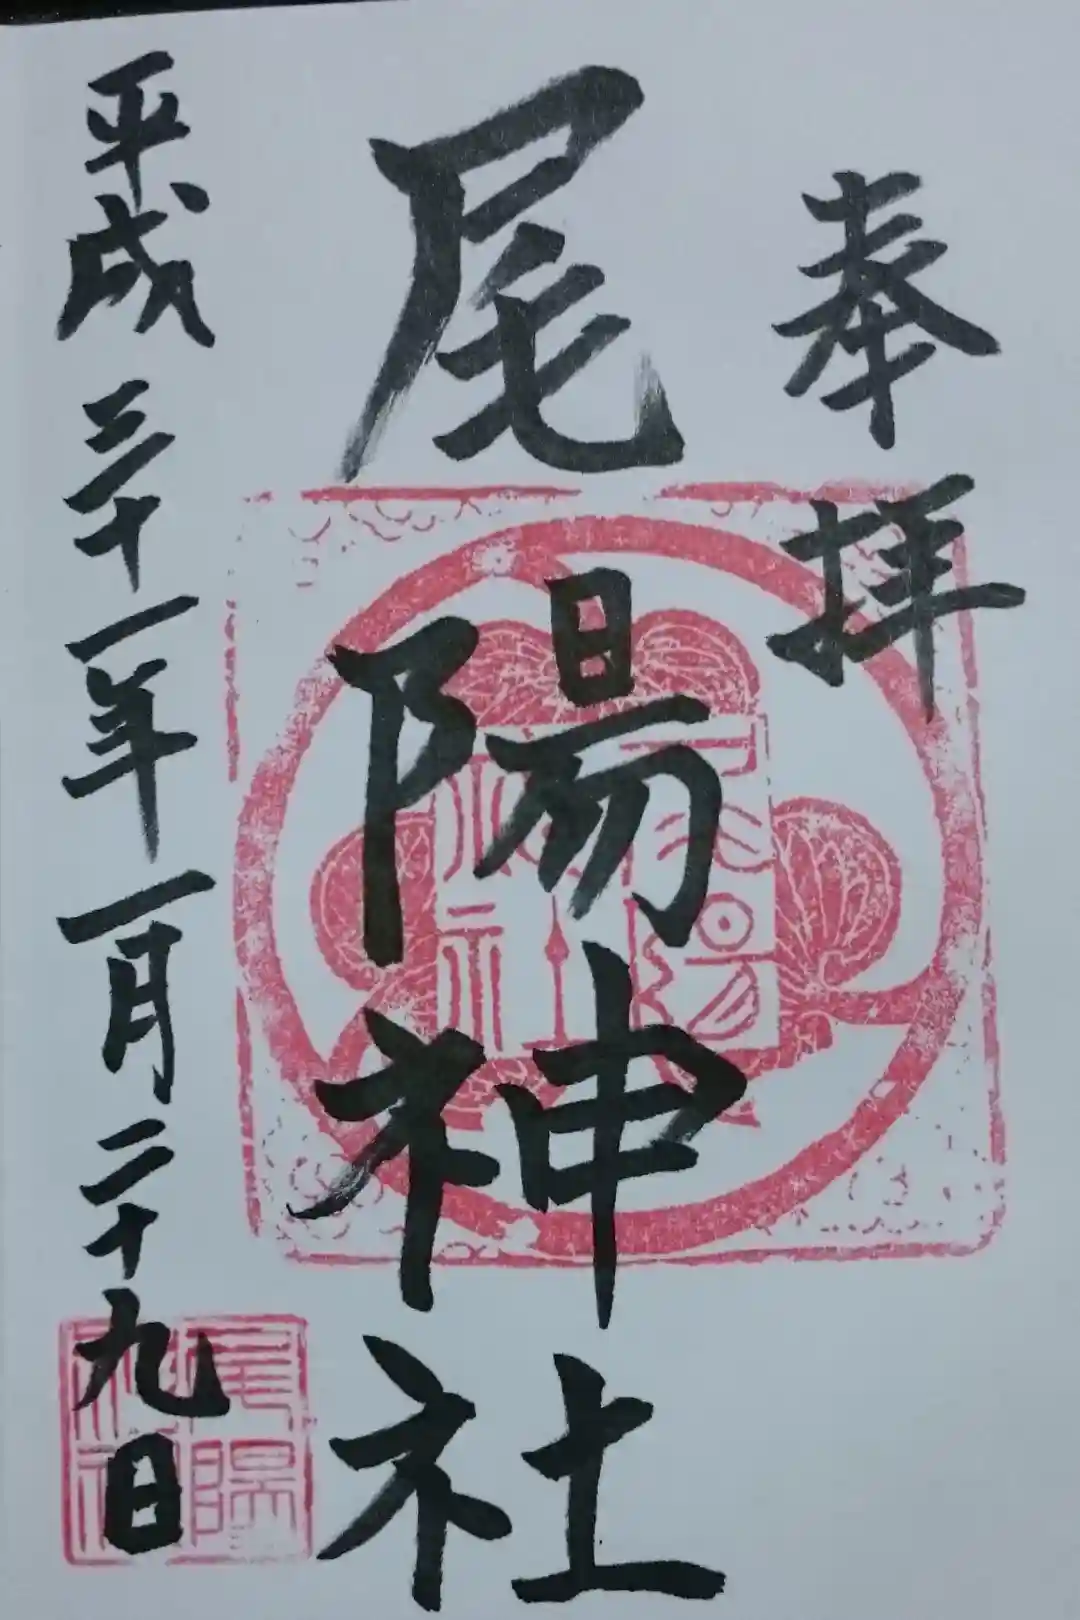 奉拝
尾陽神社
平成三十一年一月二十九日
尾陽神社